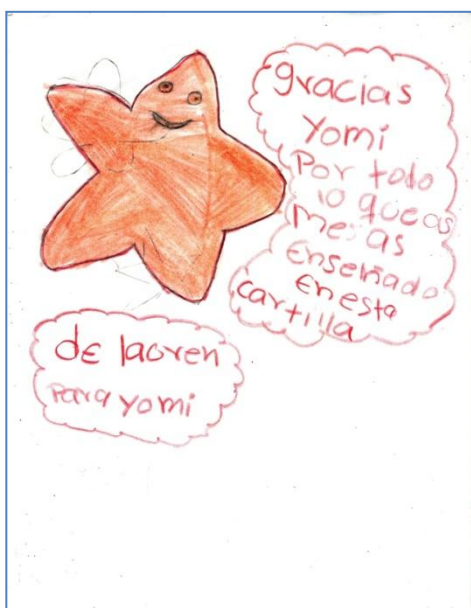 gracias
Yomi
Por todo
lo que as
me as
Enseñado
En esta
cartilla
de lauren
para yomi